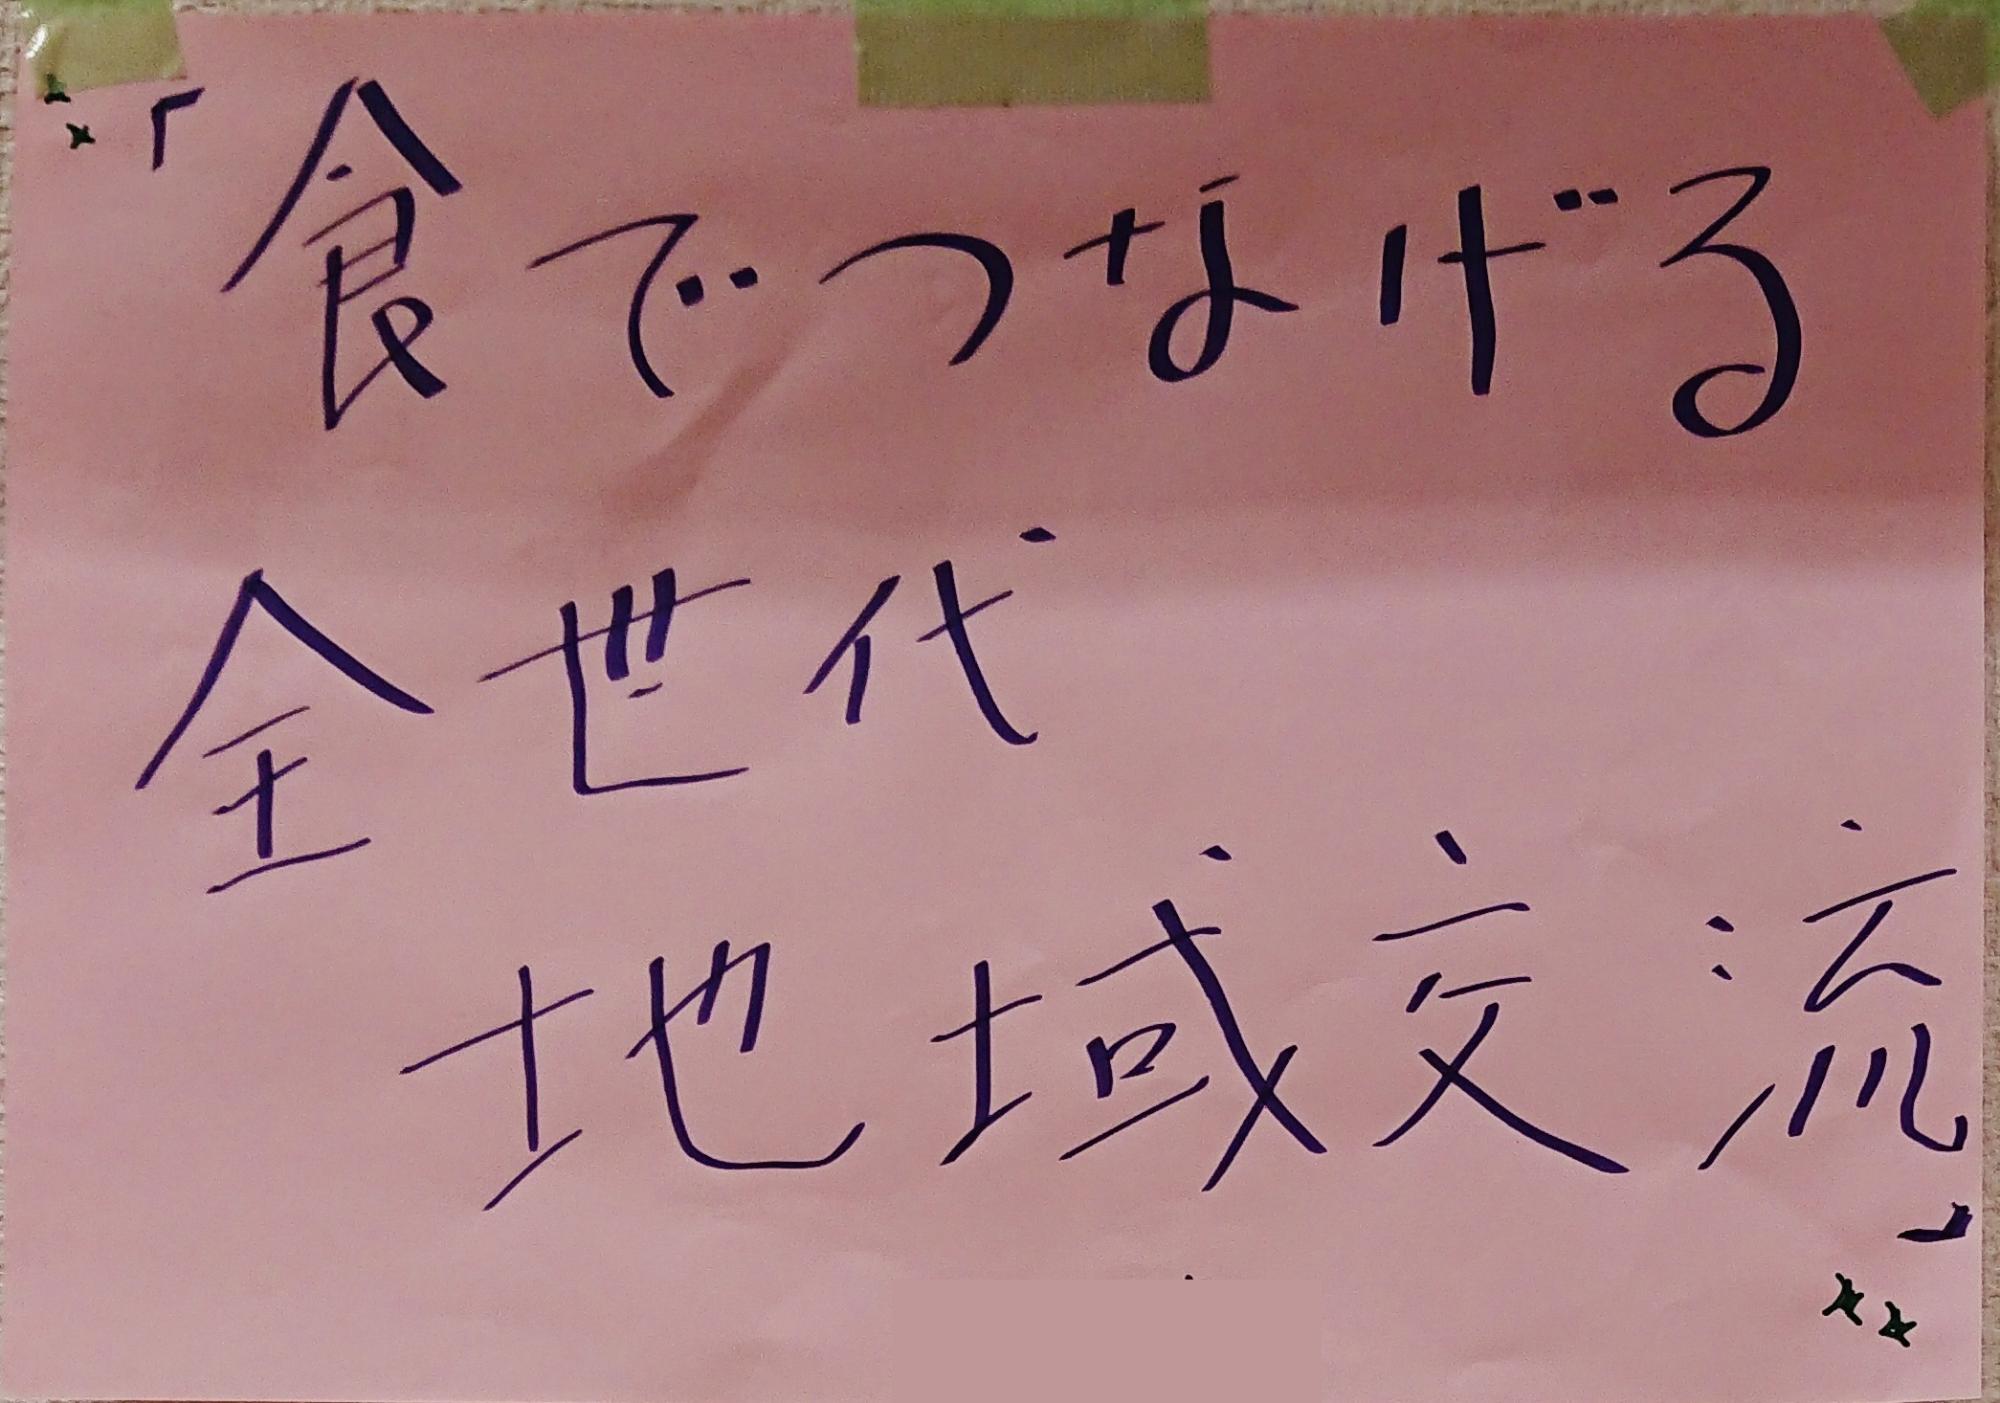 「食でつなげる
全世代
地域交流」